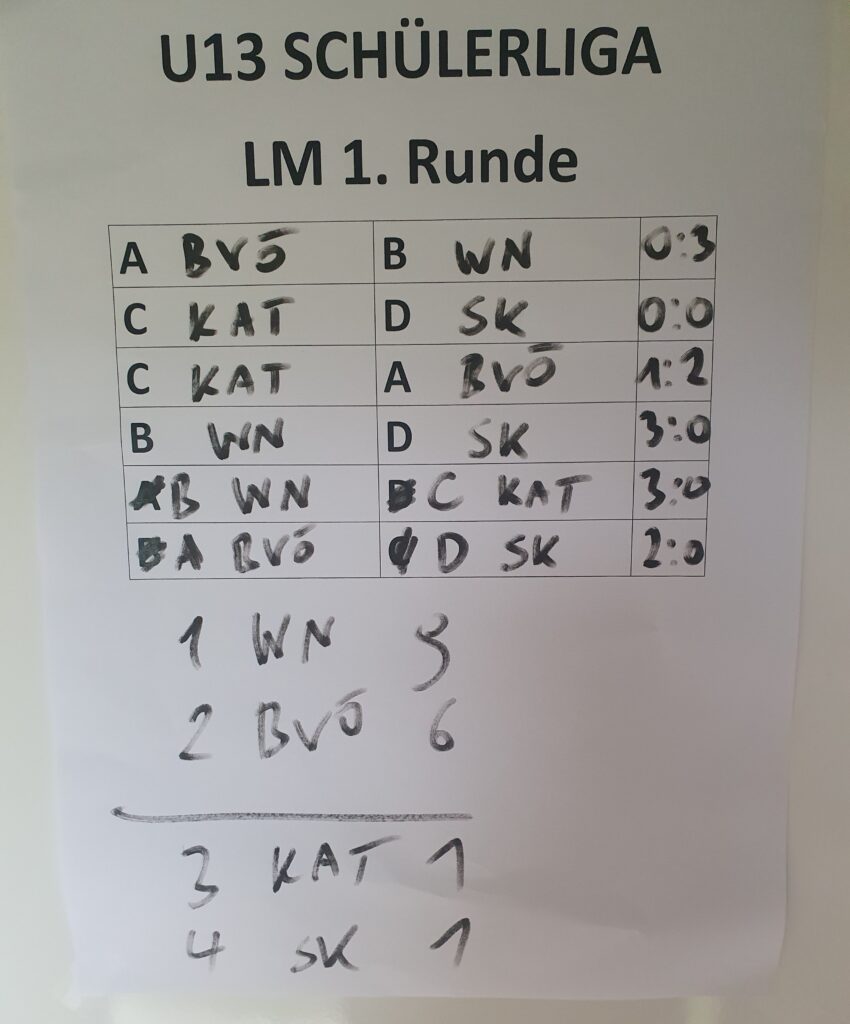 U13 SCHÜLERLIGA
LM 1. Runde
A BVÖ B WN 0:3
C KAT D SK 0:0
C KAT A BVÖ 1:2
B WN D SK 3:0
B WN C KAT 3:0
A BVÖ D SK 2:0
1 WN 9
2 BVÖ 6
3 KAT 1
4 SK 1